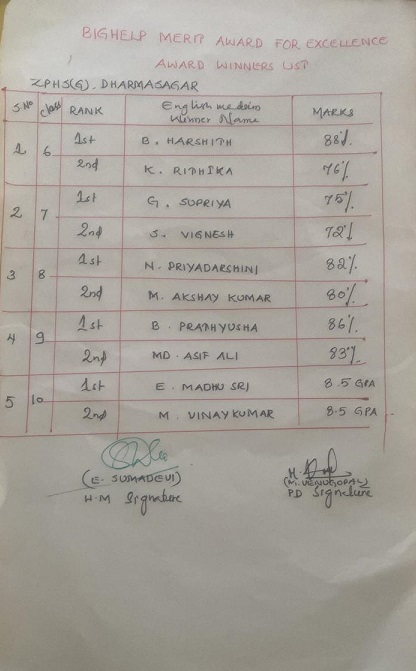 BIGHELP MERIT AWARD FOR EXCELLENCE
AWARD WINNERS LIST
ZPHS(G). DHARMASAGAR
S.No Class RANK English medium Winner Name MARKS
1 6 1st B. HARSHITH 88%
2nd K. RITHIKA 76%
2 7 1st G. SUPRIYA 75%
2nd S. VIGNESH 72%
3 8 1st N. PRIYADARSHINI 82%
2nd M. AKSHAY KUMAR 80%
4 9 1st B. PRATHYUSHA 86%
2nd MD. ASIF ALI 83%
5 10 1st E. MADHU SRI 8.5 GPA
2nd M. VINAY KUMAR 8.5 GPA
(E. SUMADEVI) (M. VENUGOPAL)
H.M Signature PD Signature